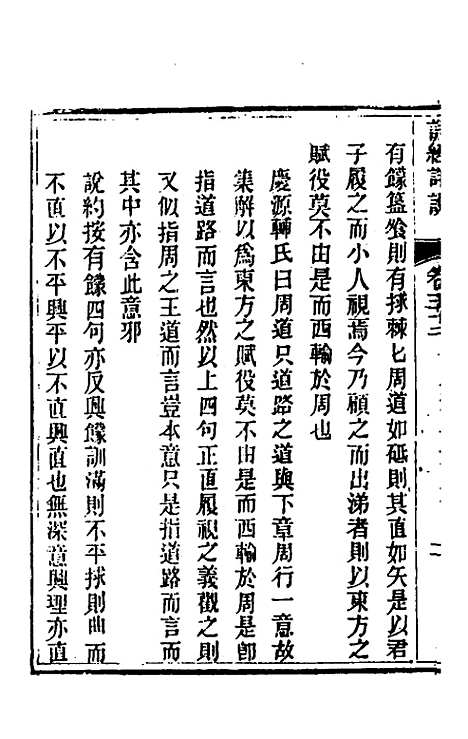 詩經詳說
有饛簋飧則有捄棘匕周道如砥則其直如矢是以君
子履之而小人視焉今乃顧之而出涕者則以東方之
賦役莫不由是而西輸於周也
慶源輔氏曰周道只道路之道與下章周行一意故
集解以爲東方之賦役莫不由是而西輸於周是卽
指道路而言也然以上四句正直履視之義觀之則
又似指周之王道而言豈本意只是指道路而言而
其中亦含此意邪
說約按有饛四句亦反興饛訓滿則不平捄則曲而
不直以不平興平以不直興直也無深意興理亦直